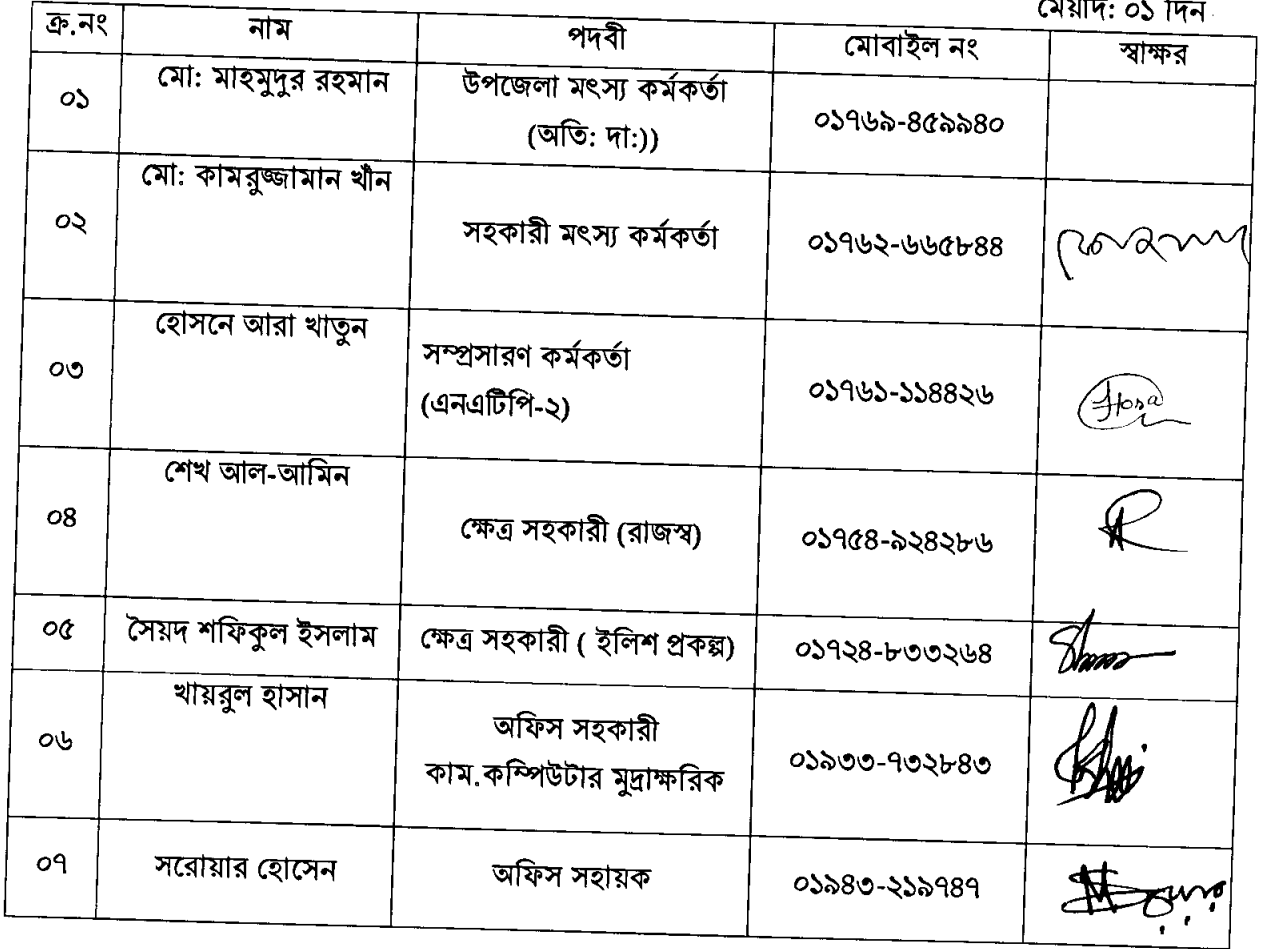 মেয়াদ: ০১ দিন
ক্র.নং নাম পদবী মোবাইল নং স্বাক্ষর
০১ মো: মাহমুদুর রহমান উপজেলা মৎস্য কর্মকর্তা ০১৭৬৯-৪৫৯৯৪০
(অতি: দা:))
০২ মো: কামরুজ্জামান খাঁন সহকারী মৎস্য কর্মকর্তা ০১৭৬২-৬৬৫৮৪৪
০৩ হোসনে আরা খাতুন সম্প্রসারণ কর্মকর্তা ০১৭৬১-১১৪৪২৬
(এনএটিপি-২)
০৪ শেখ আল-আমিন ক্ষেত্র সহকারী (রাজস্ব) ০১৭৫৪-৯২৪২৮৬
০৫ সৈয়দ শফিকুল ইসলাম ক্ষেত্র সহকারী ( ইলিশ প্রকল্প) ০১৭২৪-৮৩৩২৬৪
০৬ খায়রুল হাসান অফিস সহকারী ০১৯৩৩-৭৩২৮৪৩
কাম.কম্পিউটার মুদ্রাক্ষরিক
০৭ সরোয়ার হোসেন অফিস সহায়ক ০১৯৪৩-২১৯৭৪৭